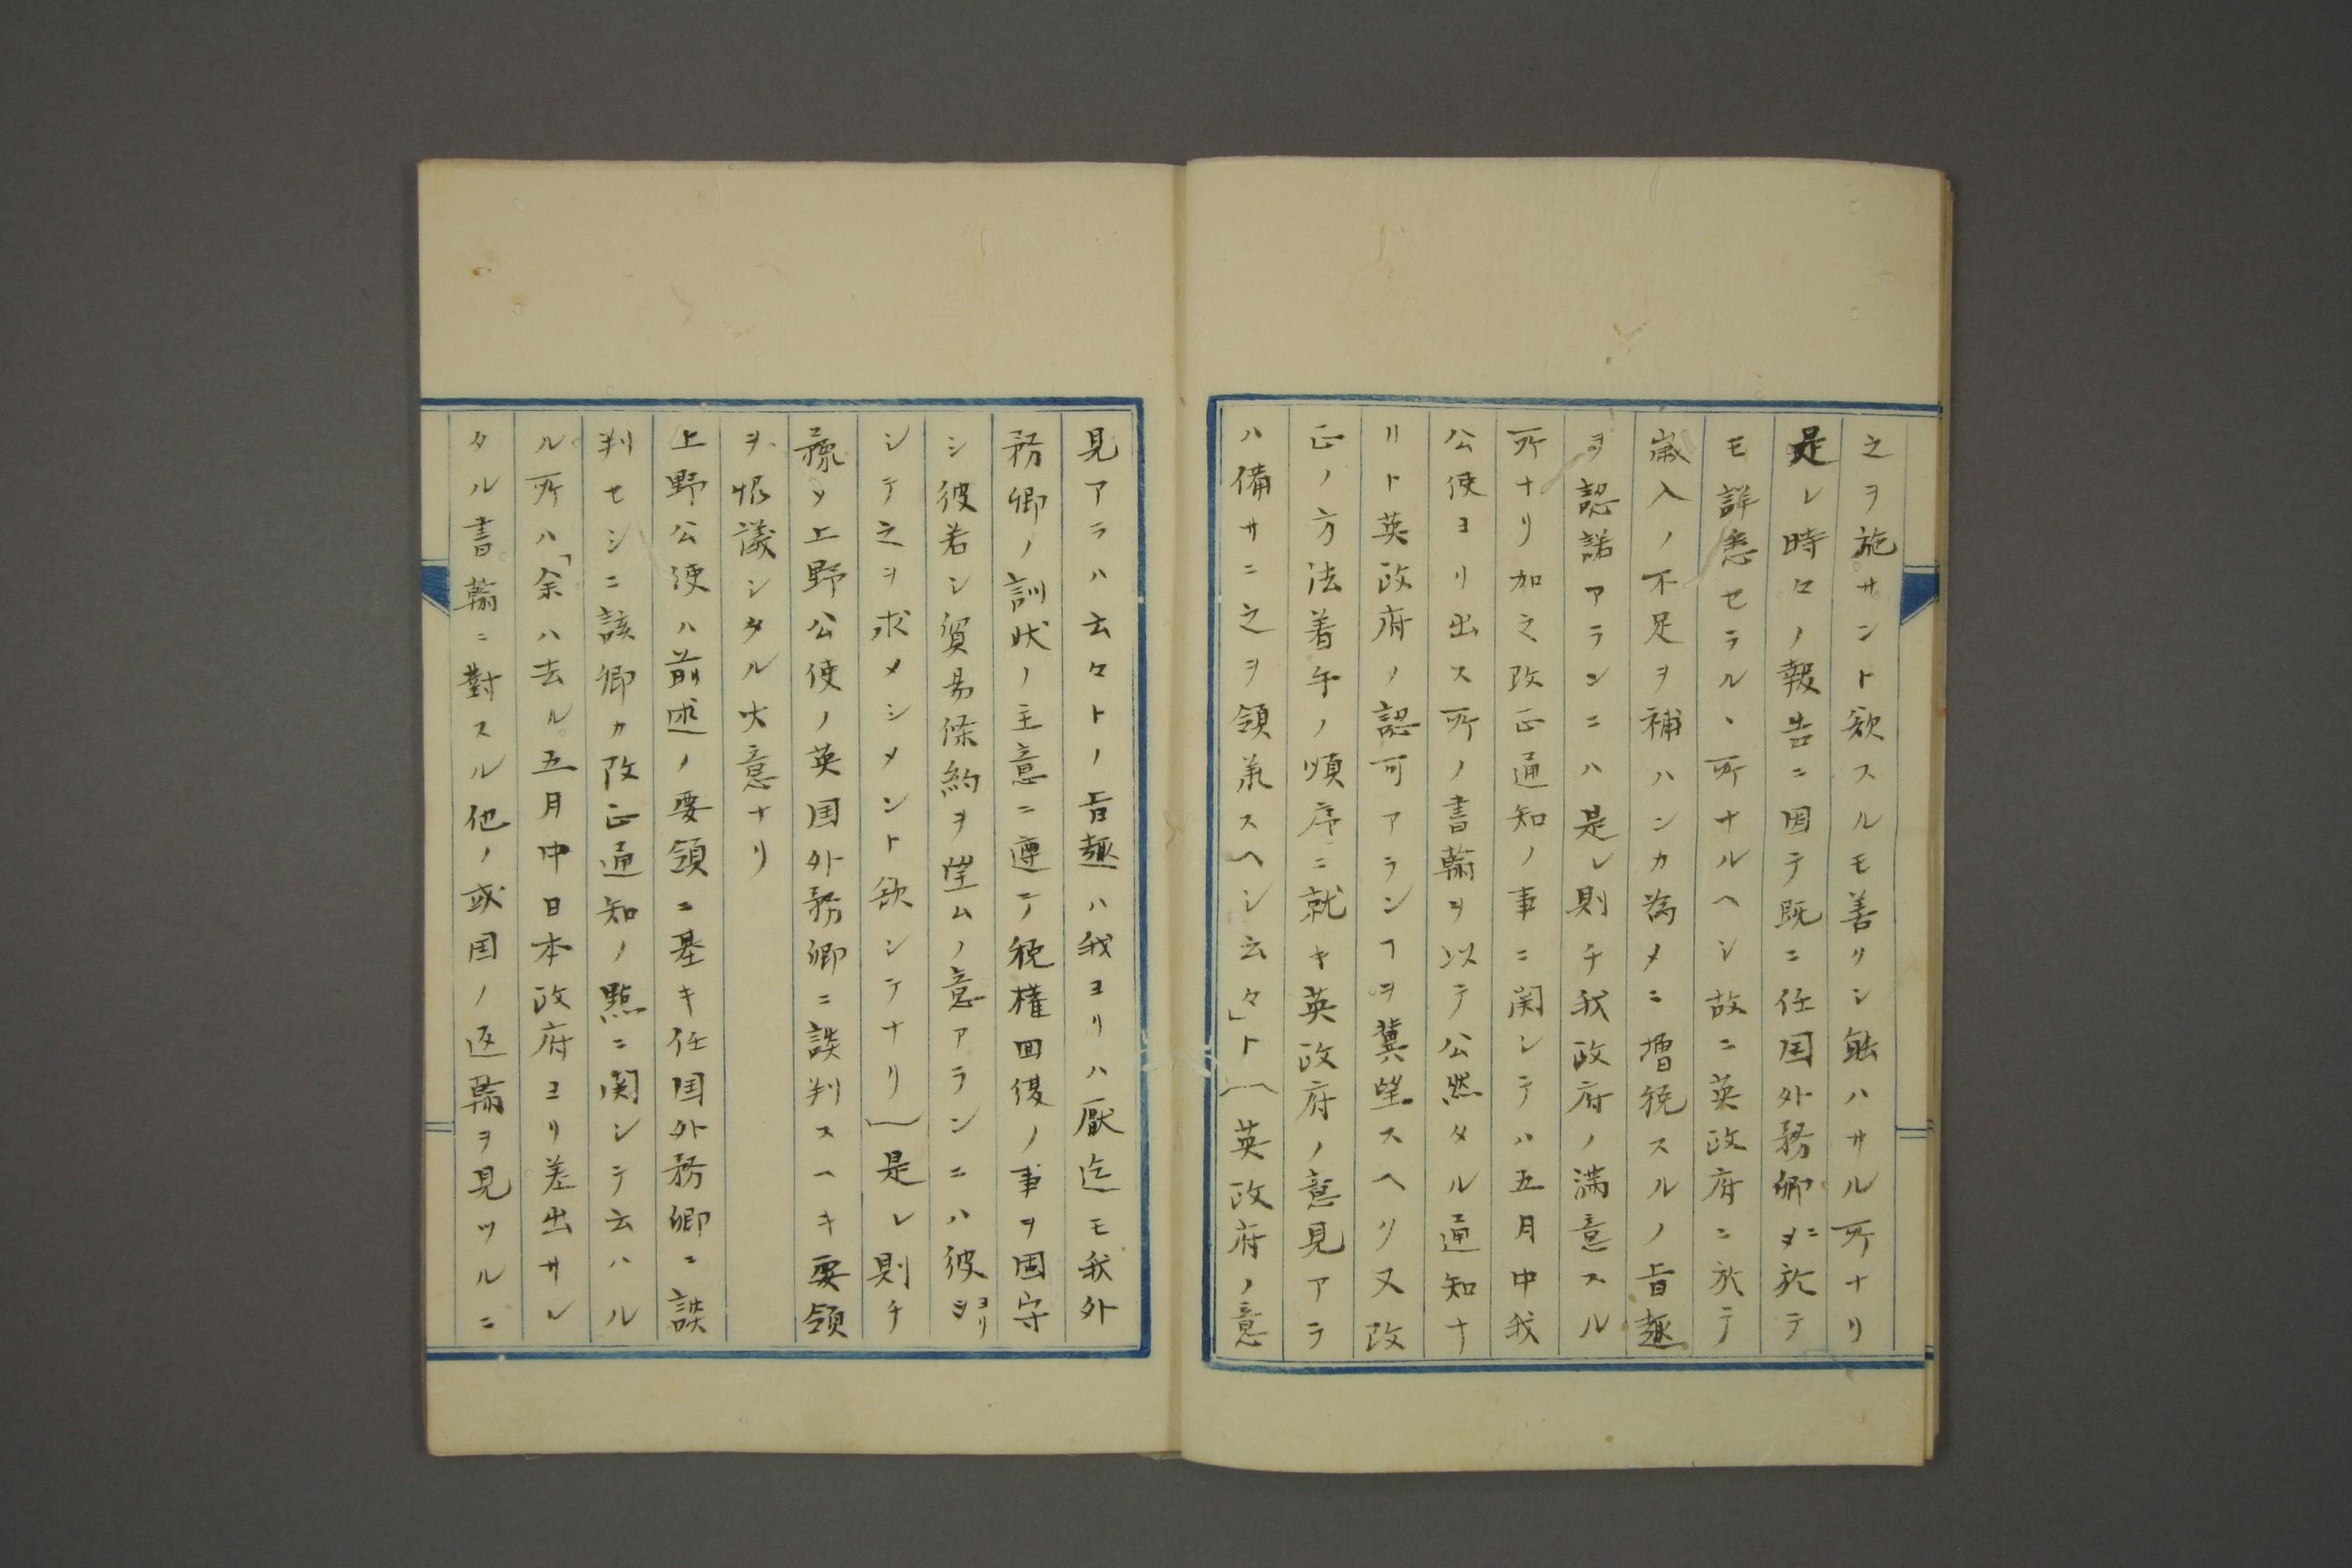 之ヲ施サント欲スルモ善リシ能ハサル所ナリ
是レ時々ノ報告ニ因テ既ニ任国外務卿ニ於テ
モ詳悉セラルヽ所ナルヘシ故ニ英政府ニ於テ
歳入ノ不足ヲ補ハンカ為メニ増税スルノ旨趣
ヲ認諾アランニハ是レ則チ我政府ノ満意スル
所ナリ加之改正通知ノ事ニ関シテハ五月中我
公使ヨリ出ス所ノ書翰ヲ以テ公然タル通知ナ
リト英政府ノ認可アランヿヲ冀望スヘリ又改
正ノ方法着手ノ順序ニ就キ英政府ノ意見アラ
ハ備サニ之ヲ領承スヘシ云々」ト（英政府ノ意
見アラハ云々トノ旨趣ハ我ヨリハ厭迄モ我外
務卿ノ訓状ノ主意ニ遵テ税権回復ノ事ヲ固守
シ彼若シ貿易条約ヲ望ムノ意アランニハ彼ヨリ
シテ之ヲ求メシメント欲シテナリ）是レ則チ
豫メ上野公使ノ英国外務卿ニ談判スヘキ要領
ヲ協議シタル大意ナリ
上野公使ハ前述ノ要領ニ基キ任国外務卿ニ談
判セシニ該卿カ改正通知ノ點ニ関シテ云ハル
ル所ハ「余ハ去ル五月中日本政府ヨリ差出サレ
タル書翰ニ對スル他ノ或国ノ返翰ヲ見ツルニ